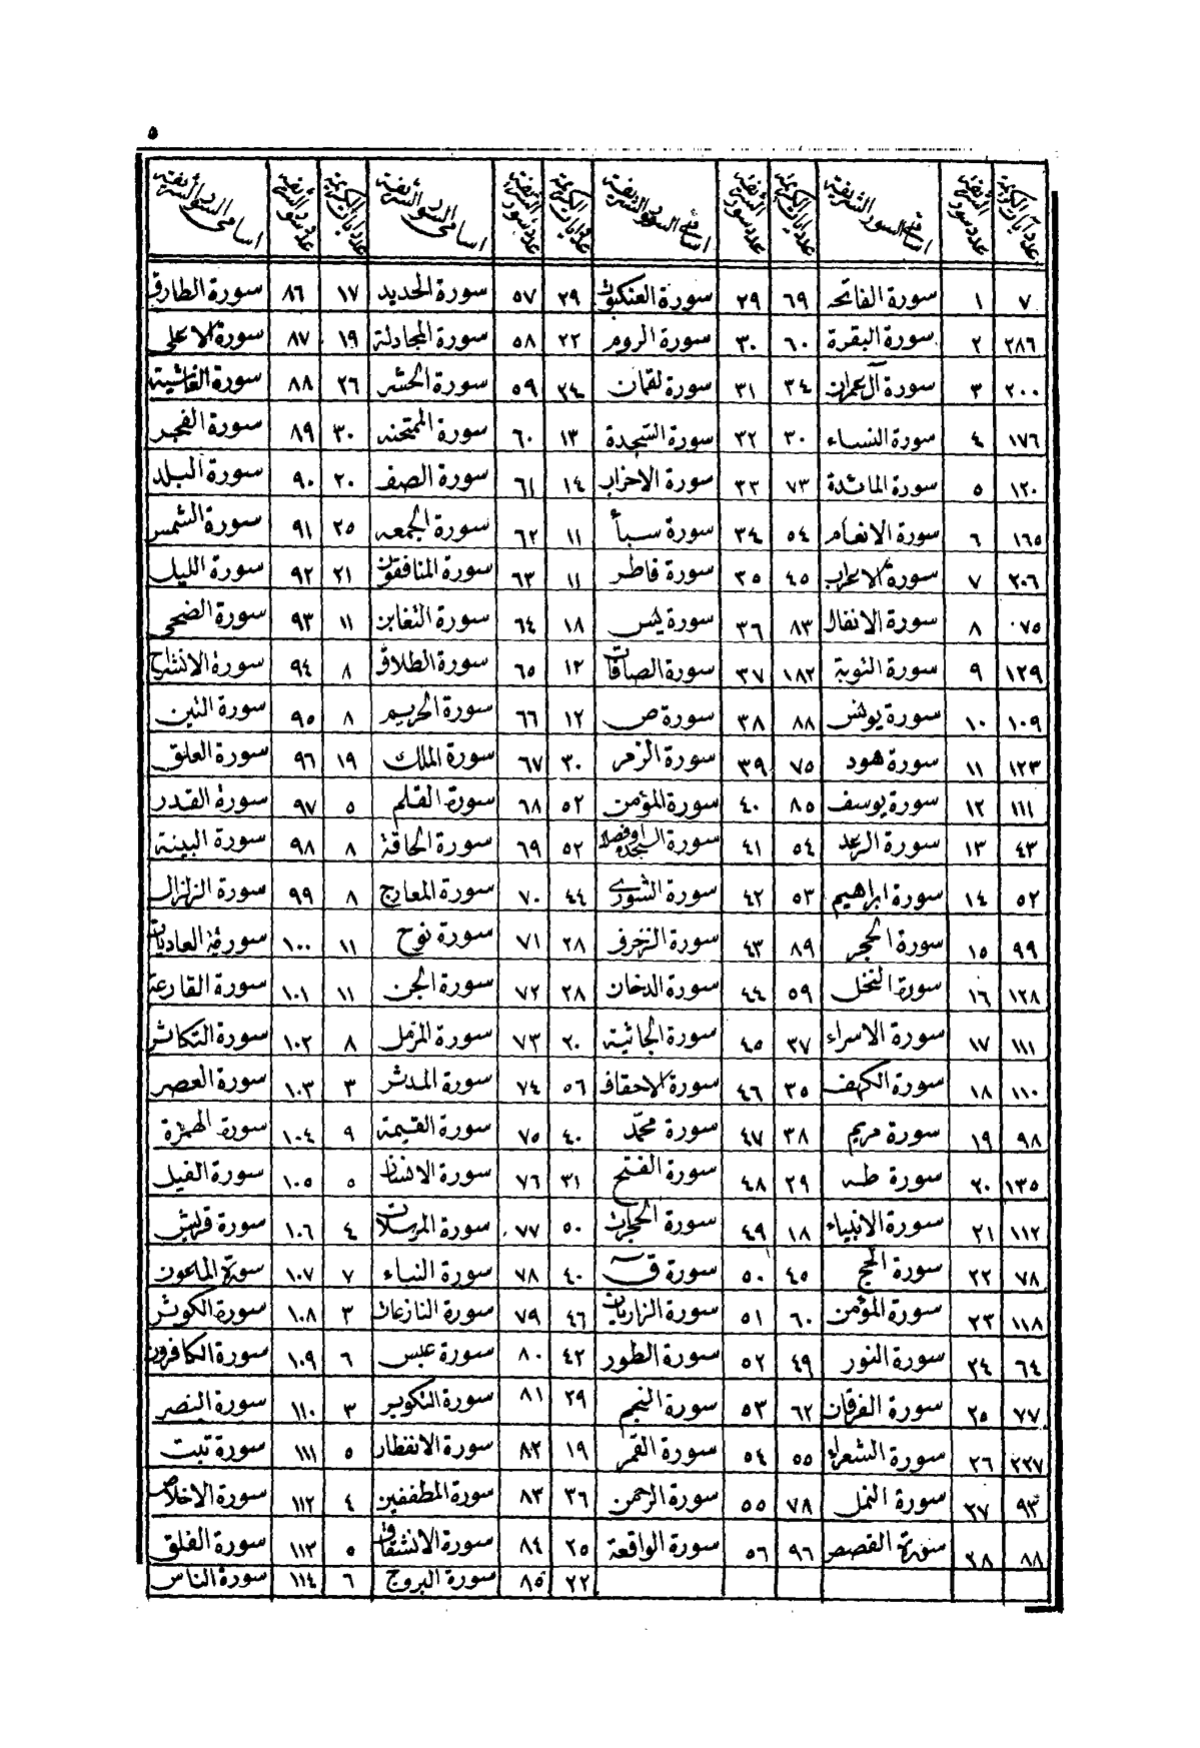 ٥
عدد آيات الكريمة عدد سور الشريفة اسامى السور الشريفة عدد آيات الكريمة عدد سور الشريفة اسامى السور الشريفة عدد آيات الكريمة عدد سور الشريفة اسامى السور الشريفة عدد آيات الكريمة عدد سور الشريفة اسامى السور الشريفة
٧ ١ سورة الفاتحه ٦٩ ٢٩ سورة العنكبوت ٢٩ ٥٧ سورة الحديد ١٧ ٨٦ سورة الطارق
٢٨٦ ٢ سورة البقرة ٦٠ ٣٠ سورة الروم ٢٢ ٥٨ سورة المجادلة ١٩ ٨٧ سورة الاعلى
٢٠٠ ٣ سورة آل عمران ٣٤ ٣١ سورة لقمان ٢٤ ٥٩ سورة الحشر ٢٦ ٨٨ سورة الغاشية
١٧٦ ٤ سورة النساء ٣٠ ٣٢ سورة السجدة ١٣ ٦٠ سورة الممتحنه ٣٠ ٨٩ سورة الفجر
١٢٠ ٥ سورة المائدة ٧٣ ٣٣ سورة الاحزاب ١٤ ٦١ سورة الصف ٢٠ ٩٠ سورة البلد
١٦٥ ٦ سورة الانعام ٥٤ ٣٤ سورة سبأ ١١ ٦٢ سورة الجمعه ٢٥ ٩١ سورة الشمس
٢٠٦ ٧ سورة الاعراب ٤٥ ٣٥ سورة فاطر ١١ ٦٣ سورة المنافقون ٢١ ٩٢ سورة الليل
٠٧٥ ٨ سورة الانفال ٨٣ ٣٦ سورة يس ١٨ ٦٤ سورة التغابن ١١ ٩٣ سورة الضحى
١٢٩ ٩ سورة التوبة ١٨٢ ٣٧ سورة الصافات ١٢ ٦٥ سورة الطلاق ٨ ٩٤ سورة الانشراح
١٠٩ ١٠ سورة يونس ٨٨ ٣٨ سورة ص ١٢ ٦٦ سورة التحريم ٨ ٩٥ سورة التين
١٢٣ ١١ سورة هود ٧٥ ٣٩ سورة الزمر ٣٠ ٦٧ سورة الملك ١٩ ٩٦ سورة العلق
١١١ ١٢ سورة يوسف ٨٥ ٤٠ سورة المؤمن ٥٢ ٦٨ سورة القلم ٥ ٩٧ سورة القدر
٤٣ ١٣ سورة الرعد ٥٤ ٤١ سورة السجدة او فصلت ٥٢ ٦٩ سورة الحاقة ٨ ٩٨ سورة البينة
٥٢ ١٤ سورة ابراهيم ٥٣ ٤٢ سورة الشورى ٤٤ ٧٠ سورة المعارج ٨ ٩٩ سورة الزلزال
٩٩ ١٥ سورة الحجر ٨٩ ٤٣ سورة الزخرف ٢٨ ٧١ سورة نوح ١١ ١٠٠ سورة العاديات
١٢٨ ١٦ سورة النحل ٥٩ ٤٤ سورة الدخان ٢٨ ٧٢ سورة الجن ١١ ١٠١ سورة القارعة
١١١ ١٧ سورة الاسراء ٣٧ ٤٥ سورة الجاثية ٢٠ ٧٣ سورة المزمل ٨ ١٠٢ سورة التكاثر
١١٠ ١٨ سورة الكهف ٣٥ ٤٦ سورة الاحقاف ٥٦ ٧٤ سورة المدثر ٣ ١٠٣ سورة العصر
٩٨ ١٩ سورة مريم ٣٨ ٤٧ سورة محمّد ٤٠ ٧٥ سورة القيمة ٩ ١٠٤ سورة الهمزة
١٣٥ ٢٠ سورة طه ٢٩ ٤٨ سورة الفتح ٣١ ٧٦ سورة الانسان ٥ ١٠٥ سورة الفيل
١١٢ ٢١ سورة الانبياء ١٨ ٤٩ سورة الحجرات ٥٠ ٧٧ سورة المرسلات ٤ ١٠٦ سورة قريش
٧٨ ٢٢ سورة الحج ٤٥ ٥٠ سورة ق ٤٠ ٧٨ سورة النباء ٧ ١٠٧ سورة الماعون
١١٨ ٢٣ سورة المؤمن ٦٠ ٥١ سورة الزاريات ٤٦ ٧٩ سورة النازعات ٣ ١٠٨ سورة الكوثر
٦٤ ٢٤ سورة النور ٤٩ ٥٢ سورة الطور ٤٢ ٨٠ سورة عبس ٦ ١٠٩ سورة الكافرون
٧٧ ٢٥ سورة الفرقان ٦٢ ٥٣ سورة النجم ٢٩ ٨١ سورة التكوير ٣ ١١٠ سورة النصر
٢٢٧ ٢٦ سورة الشعراء ٥٥ ٥٤ سورة القمر ١٩ ٨٢ سورة الانفطار ٥ ١١١ سورة تبت
٩٣ ٢٧ سورة النمل ٧٨ ٥٥ سورة الرحمن ٣٦ ٨٣ سورة المطففين ٤ ١١٢ سورة الاخلاص
٨٨ ٢٨ سورة القصص ٩٦ ٥٦ سورة الواقعة ٢٥ ٨٤ سورة الانشقاق ٥ ١١٣ سورة الفلق
٢٢ ٨٥ سورة البروج ٦ ١١٤ سورة الناس